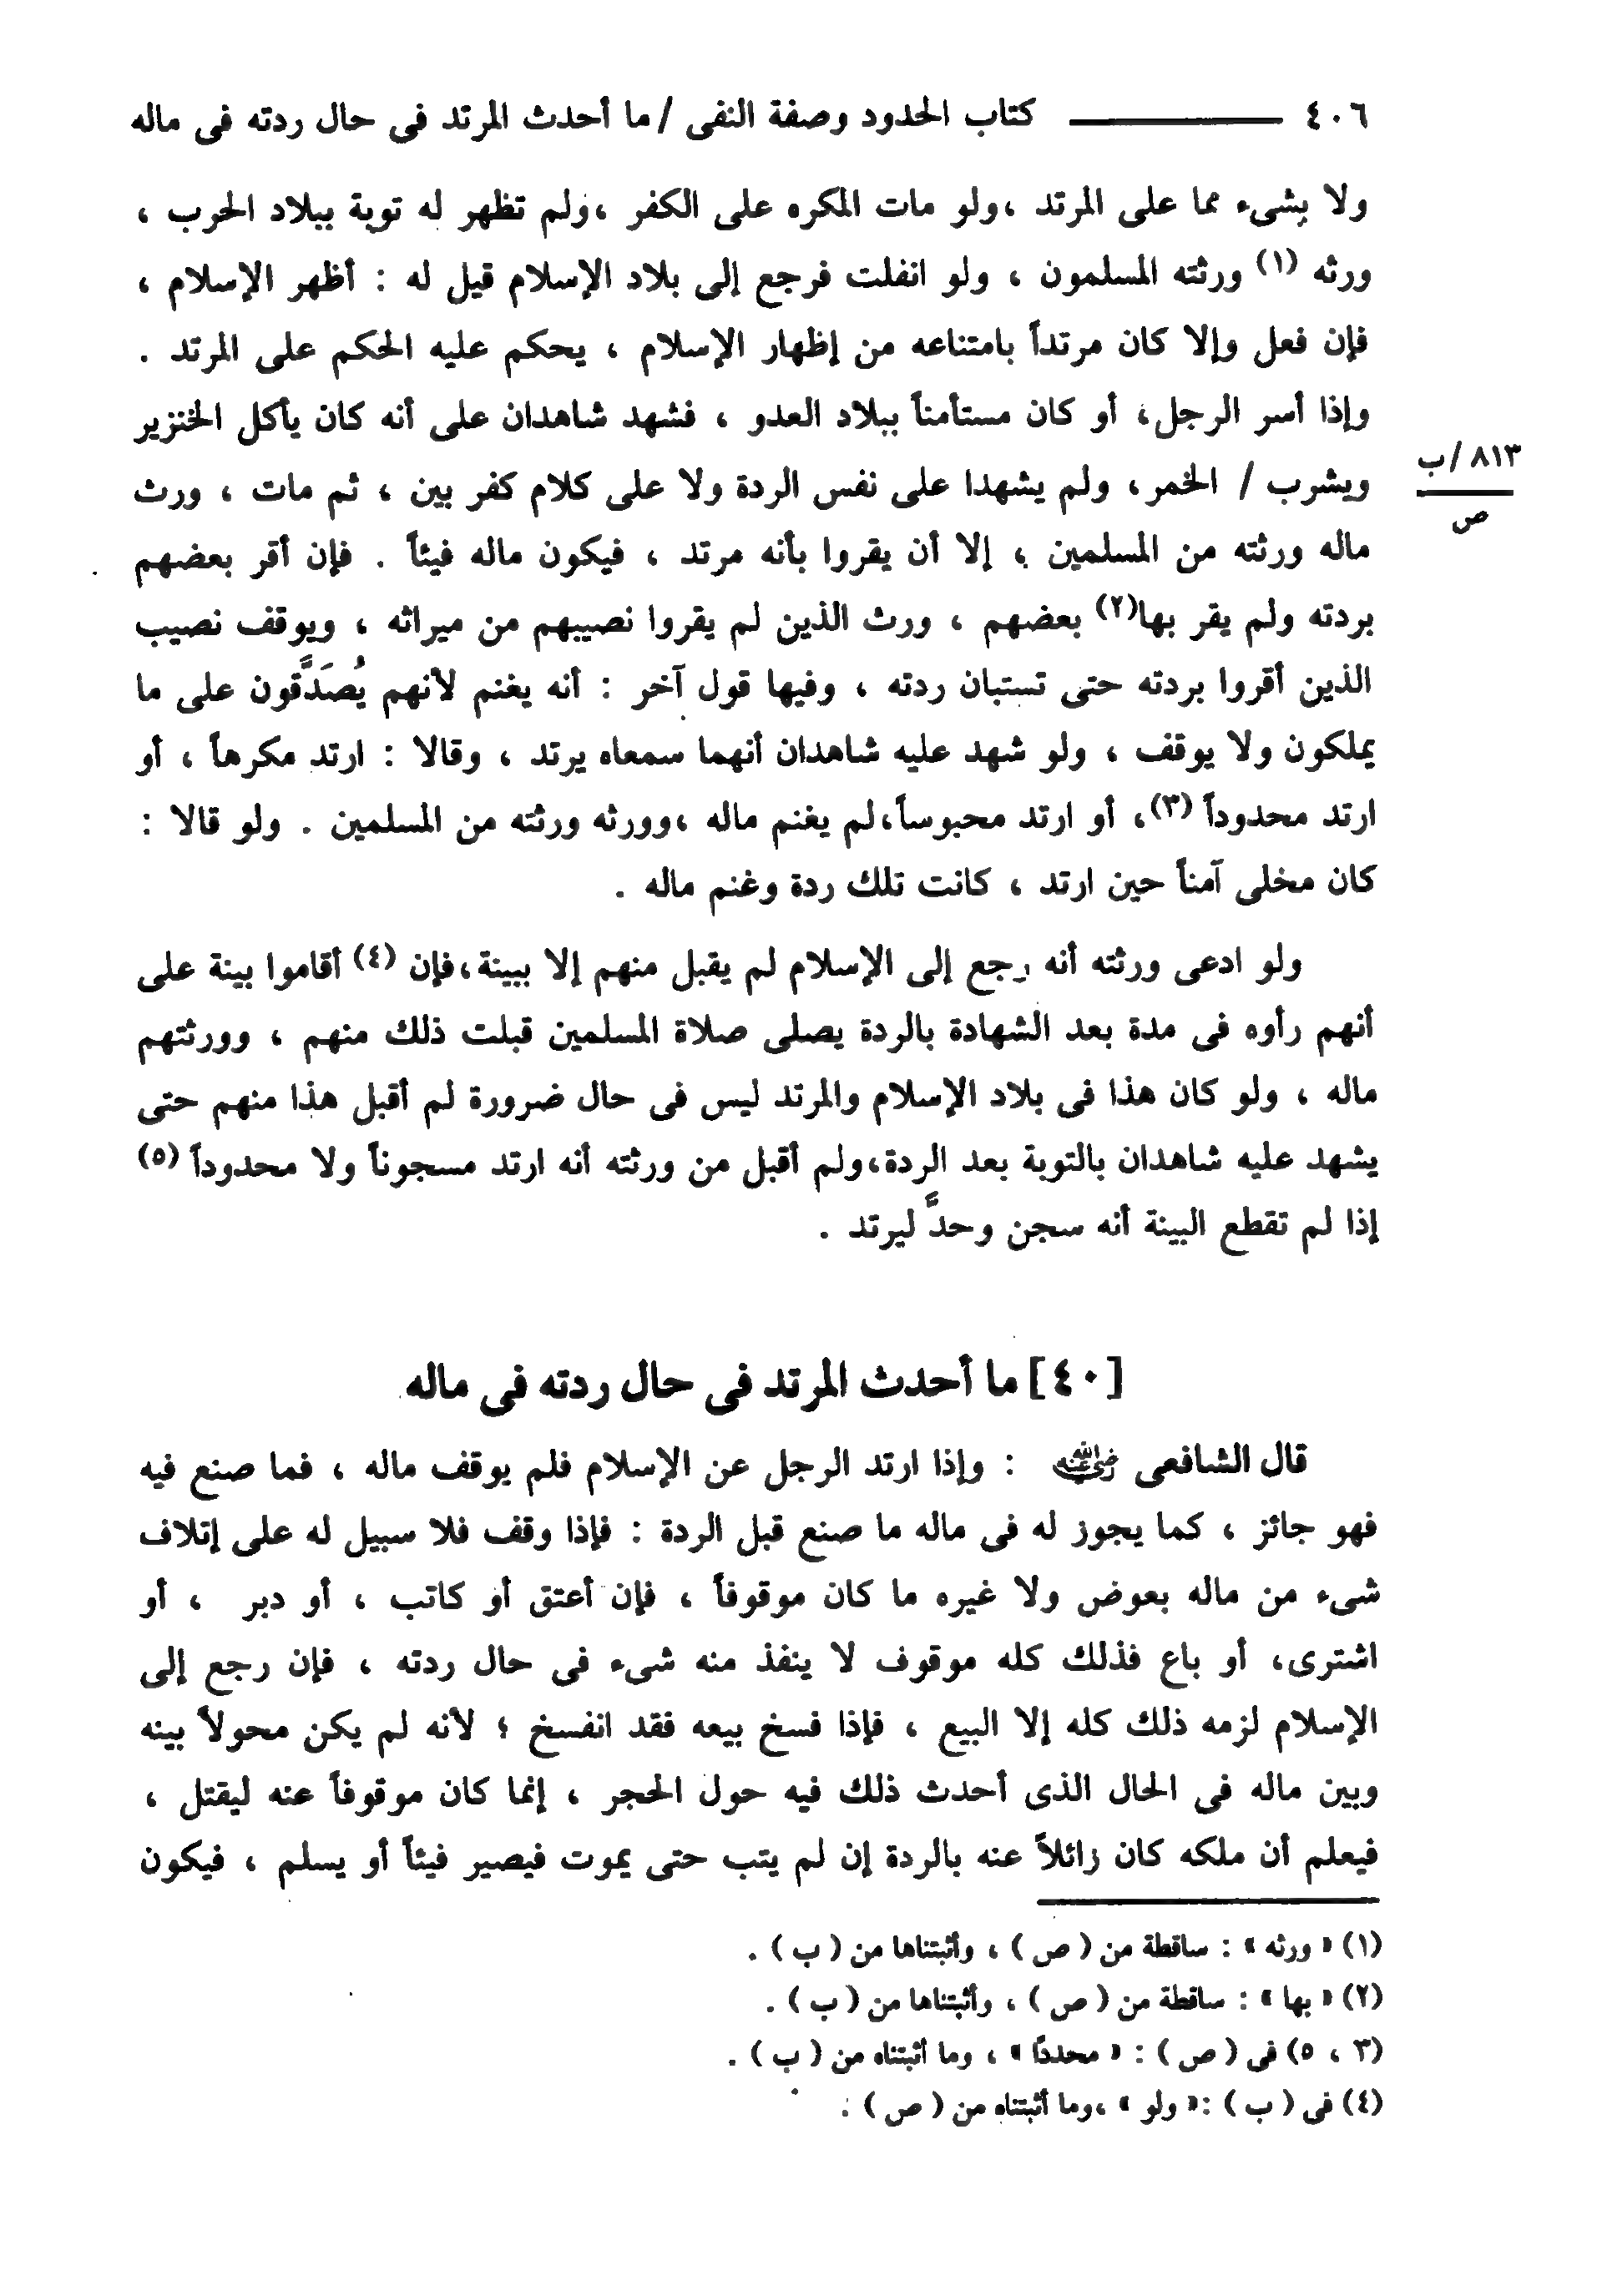 ٤٠٦ ــــــــــــ كتاب الحدود وصفة النفى / ما أحدث المرتد فى حال ردته فى ماله
ولا بشىء مما على المرتد ،ولو مات المكره على الكفر ،ولم تظهر له توبة ببلاد الحرب ،
ورثه (١) ورثته المسلمون ، ولو انفلت فرجع إلى بلاد الإسلام قيل له : أظهر الإسلام ،
فإن فعل وإلا كان مرتداً بامتناعه من إظهار الإسلام ، يحكم عليه الحكم على المرتد .
وإذا أسر الرجل، أو كان مستأمناً ببلاد العدو ، فشهد شاهدان على أنه كان يأكل الخنزير
ويشرب / الخمر، ولم يشهدا على نفس الردة ولا على كلام كفر بين ، ثم مات ، ورث
٨١٣ /ب
ص
ماله ورثته من المسلمين ، إلا أن يقروا بأنه مرتد ، فيكون ماله فيئاً . فإن أقر بعضهم
بردته ولم يقر بها(٢) بعضهم ، ورث الذين لم يقروا نصيبهم من ميراثه ، ويوقف نصيب
الذين أقروا بردته حتى تستبان ردته ، وفيها قول آخر : أنه يغنم لأنهم يُصَدَّقون على ما
يملكون ولا يوقف ، ولو شهد عليه شاهدان أنهما سمعاه يرتد ، وقالا : ارتد مكرهاً ، أو
ارتد محدوداً (٣)، أو ارتد محبوساً،لم يغنم ماله ،وورثه ورثته من المسلمين . ولو قالا :
كان مخلى آمناً حين ارتد ، كانت تلك ردة وغنم ماله .
ولو ادعى ورثته أنه رجع إلى الإسلام لم يقبل منهم إلا ببينة،فإن (٤) أقاموا بينة على
أنهم رأوه فى مدة بعد الشهادة بالردة يصلى صلاة المسلمين قبلت ذلك منهم ، وورثتهم
ماله ، ولو كان هذا فى بلاد الإسلام والمرتد ليس فى حال ضرورة لم أقبل هذا منهم حتى
يشهد عليه شاهدان بالتوبة بعد الردة،ولم أقبل من ورثته أنه ارتد مسجوناً ولا محدوداً (٥)
إذا لم تقطع البينة أنه سجن وحدَّ ليرتد .
[٤٠] ما أحدث المرتد فى حال ردته فى ماله
قال الشافعى رضي الله عنه : وإذا ارتد الرجل عن الإسلام فلم يوقف ماله ، فما صنع فيه
فهو جائز ، كما يجوز له فى ماله ما صنع قبل الردة : فإذا وقف فلا سبيل له على إتلاف
شىء من ماله بعوض ولا غيره ما كان موقوفاً ، فإن أعتق أو كاتب ، أو دبر ، أو
اشترى، أو باع فذلك كله موقوف لا ينفذ منه شىء فى حال ردته ، فإن رجع إلى
الإسلام لزمه ذلك كله إلا البيع ، فإذا فسخ بيعه فقد انفسخ ؛ لأنه لم يكن محولاً بينه
وبين ماله فى الحال الذى أحدث ذلك فيه حول الحجر ، إنما كان موقوفاً عنه ليقتل ،
فيعلم أن ملكه كان زائلاً عنه بالردة إن لم يتب حتى يموت فيصير فيئاً أو يسلم ، فيكون
(١) « ورثه » : ساقطة من ( ص ) ، وأثبتناها من ( ب ) .
(٢) « بها » : ساقطة من ( ص ) ، وأثبتناها من ( ب ) .
(٣ ، ٥) فى ( ص ) : « محدداً » ، وما أثبتناه من ( ب ) .
(٤) فى ( ب ) :« ولو » ،وما أثبتناه من ( ص ) .